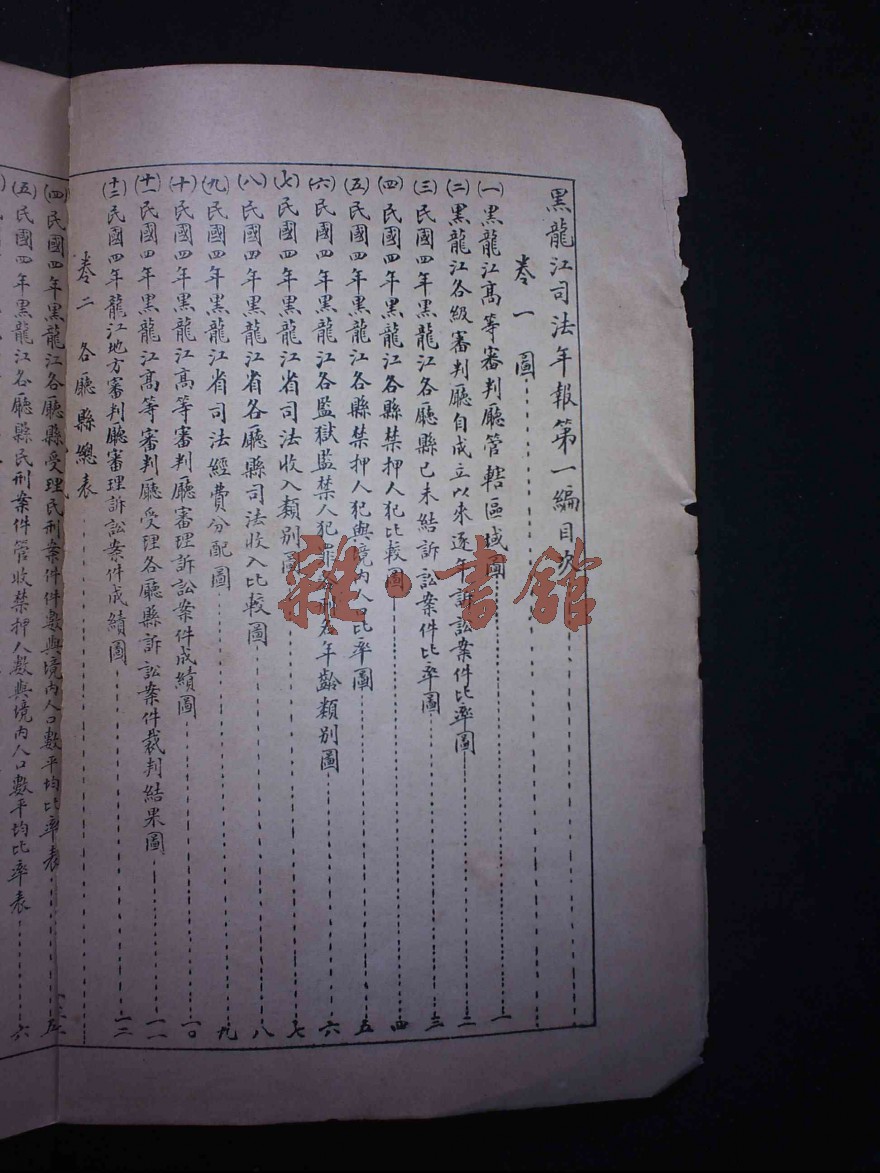 黑龍江司法年報第一編目次
卷一 圖
(一)黑龍江高等審判廳管轄區域圖 一
(二)黑龍江各級審判廳自成立以來逐年訴訟案件比率圖 二
(三)民國四年黑龍江各廳縣已未結訴訟案件比率圖 三
(四)民國四年黑龍江各縣禁押人犯比較圖 四
(五)民國四年黑龍江各縣禁押人犯與境內人口比率圖 五
(六)民國四年黑龍江各監獄監禁人犯罪 年齡類別圖 六
(七)民國四年黑龍江省司法收入類別圖 七
(八)民國四年黑龍江省各廳縣司法收入比較圖 八
(九)民國四年黑龍江省司法經費分配圖 九
(十)民國四年黑龍江高等審判廳審理訴訟案件成績圖 一〇
(十一)民國四年黑龍江高等審判廳受理各廳縣訴訟案件裁判結果圖 一一
(十二)民國四年龍江地方審判廳審理訴訟案件成績圖 一二
卷二 各廳縣總表
(四)民國四年黑龍江各廳縣受理民刑案件件數與境內人口數平均比率表 五
(五)民國四年黑龍江各廳縣民刑案件管收禁押人數與境內人口數平均比率表 六
雜·書館